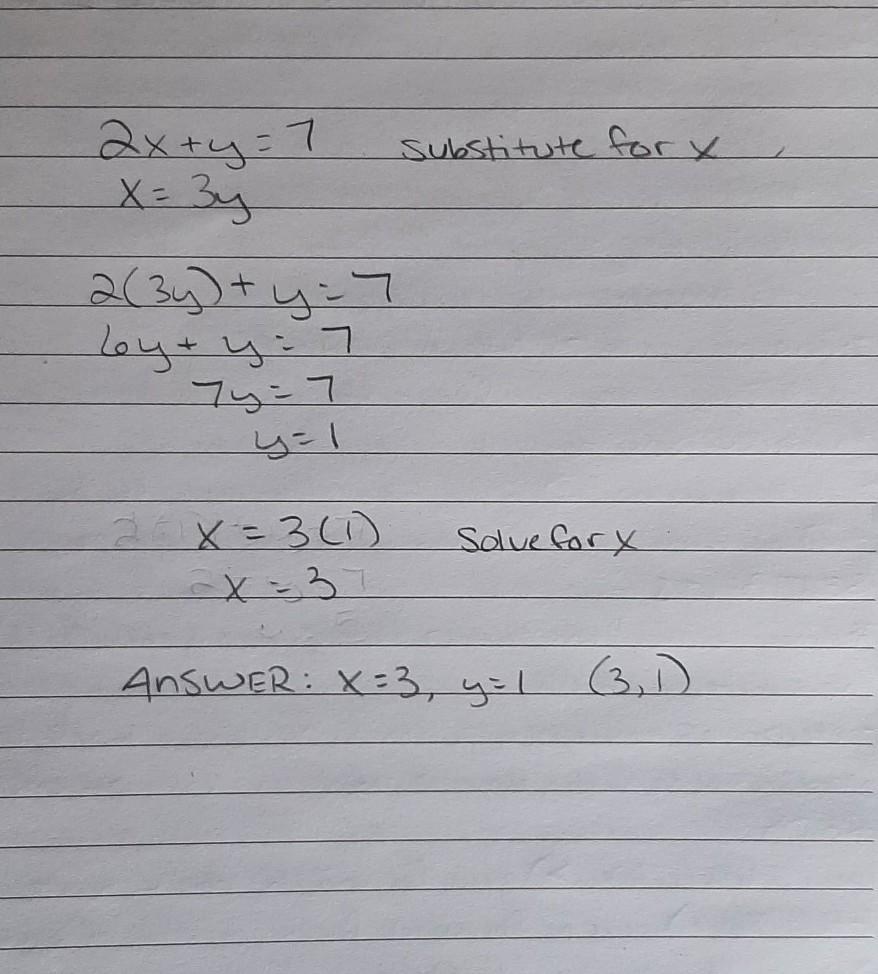 2x+y=7 substitute for x
x=3y
2(3y)+y=7
6y+y=7
7y=7
y=1
x=3(1) Solve for x
x=3
ANSWER: x=3, y=1 (3,1)